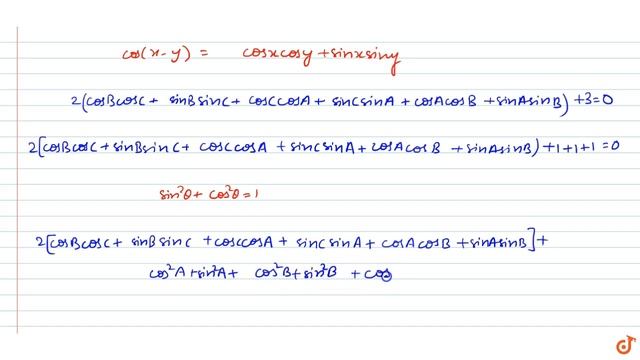 cos(x-y) = cosxcosy+sinxsiny
2(cosBcosC+ sinBsinC+ cosCcosA+ sinCsinA + cosAcosB +sinAsinB) +3=0
2[cosBcosC+sinBsinC+ cosCcosA +sinCsinA+cosAcosB +sinAsinB)+1+1+1=0
sin²θ+ cos²θ=1
2[cosBcosC+ sinBsinC +cosCcosA+ sinCsinA+ cosAcosB+sinAsinB]+
cos²A+sin²A+ cos²B+sin²B +cos